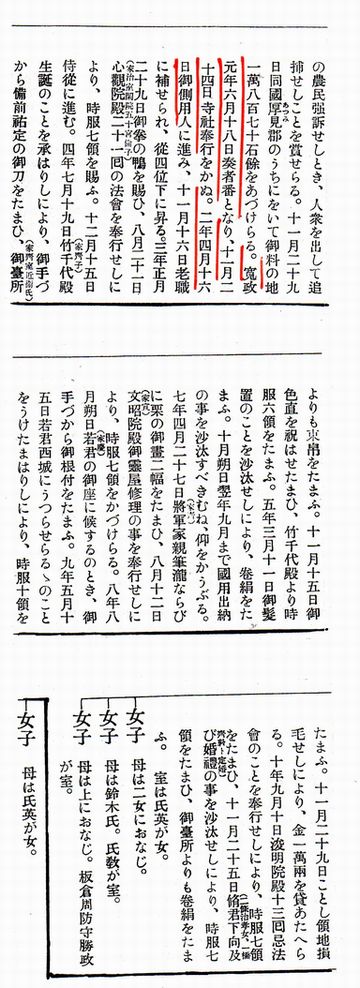 の農民強訴せしとき、人衆を出して追
捕せしことを賞せらる。十一月二十九
日同國厚見郡のうちにをいて御料の地
あつみ
一萬八百七十石餘をあづけらる。寬政
元年六月十八日奏者番となり、十一月二
十四日寺社奉行をかぬ。二年四月十六
日御側用人に進み、十一月十六日老職
に補せられ、從四位下に昇る。三年正月
二十九日御拳の鴨を賜ひ、八月二十一日
心觀院殿二十一回の法會を奉行せしに
より、時服七領を賜ふ。十二月十五日
侍從に進む。四年七月十九日竹千代殿
(家齊子)
生誕のことを承はりしにより、御手づ
から備前祐定の御刀をたまひ、御臺所
(家齊室近衞氏)
よりも東帛をたまふ。十一月十五日御
色直を祝はせたまひ、竹千代殿より時
服六領をたまふ。五年三月十一日御髮
置のことを沙汰せしにより、卷絹をた
まふ。十月朔日翌年九月まで國用出納
の事を沙汰すべきむね、仰をかうぶる。
七年四月二十七日將軍家親筆瀧ならび
(家齊)
に栗の御畫二幅をたまひ、八月十二日
文昭院殿御靈屋修理の事を奉行せしに
(家宣)
より、時服七領をかづけらる。八年八
月朔日若君の御座に候するのとき、御
(家慶)
手づから御根付をたまふ。九年五月十
五日若君西城にうつらせらるゝのこと
をうけたまはりしにより、時服十領を
たまふ。十一月二十九日ことし領地損
毛せしにより、金一萬兩を貸あたへら
る。十年九月十日浚明院殿十三回忌法
會のことを奉行せしにより、時服七領
をたまひ、十一月二十五日脩君下向及
び婚禮の事を沙汰せしにより、時服七
領をたまひ、御臺所よりも卷絹をたま
ふ。 室は氏英が女。
女子 母は二女におなじ。
女子 母は鈴木氏。氏敎が室。
女子 母は上におなじ。板倉周防守勝政
が室。
女子 母は氏英が女。